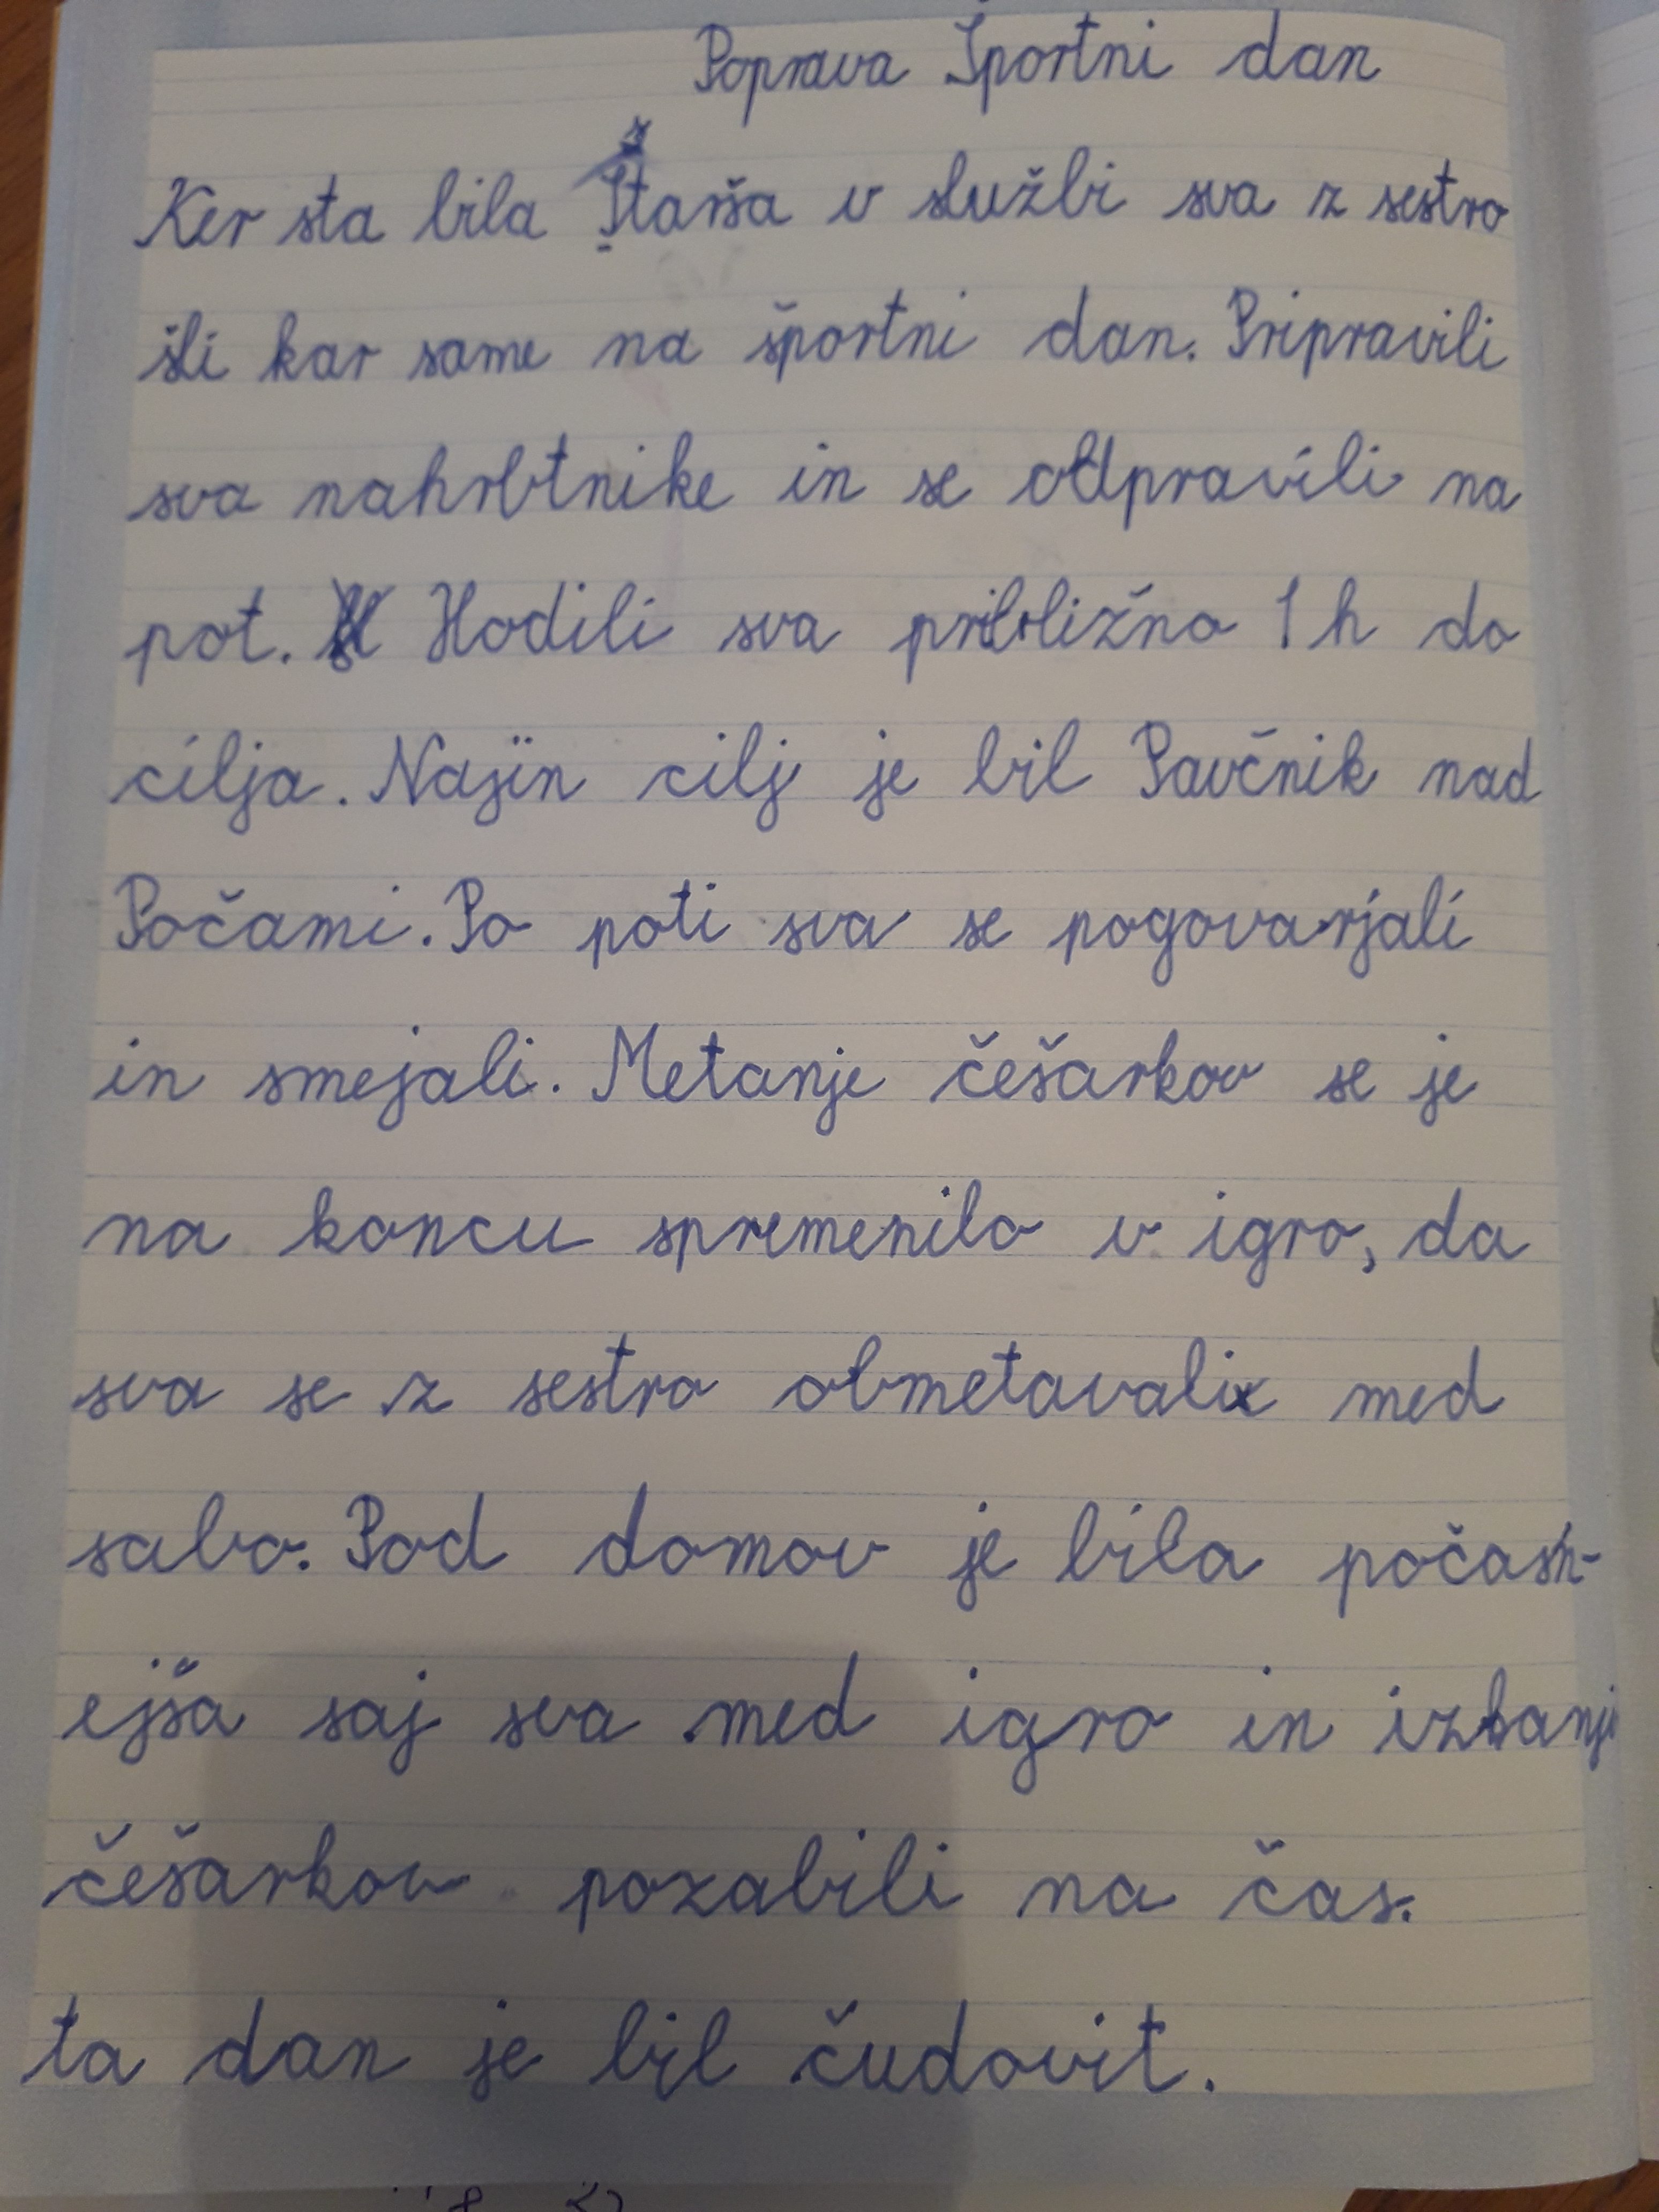 Poprava Športni dan
Ker sta bila Starša v službi sva z sestro
šli kar same na športni dan. Pripravili
sva nahrbtnike in se odpravili na
pot. Hodili sva približno 1 h do
cilja. Najin cilj je bil Pavčnik nad
Počami. Po poti sva se pogovarjali
in smejali. Metanje češarkov se je
na koncu spremenilo v igro, da
sva se z sestro obmetavali med
sabo. Pod domov je bila počasn-
ejša saj sva med igro in
češarkov pozabili na čas.
ta dan je bil čudovit.